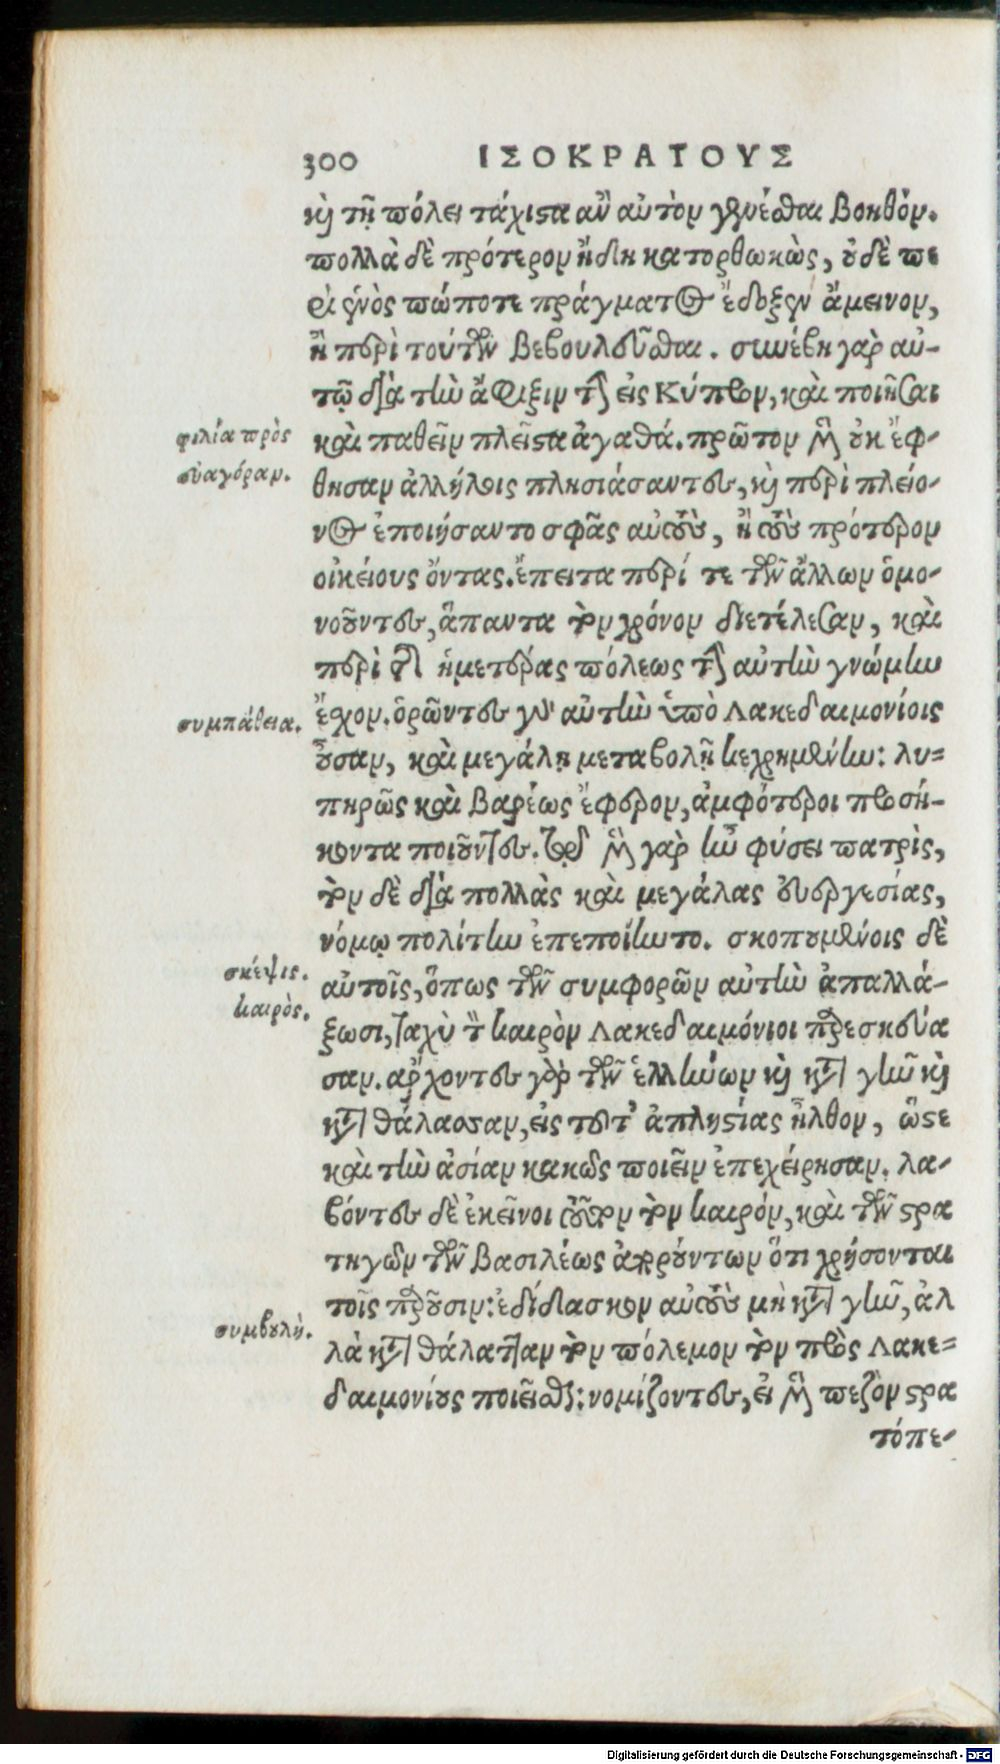 300 ΙΣΟΚΡΑΤΟΥΣ
καὶ τῇ πόλει τάχιστα ἂν αὐτὸν γενέσθαι βοηθόν.
πολλὰ δὲ πρότερον ἤδη κατορθωκὼς, οὐδὲ πε
ρὶ ἑνὸς πώποτε πράγματος ἔδοξεν ἄμεινον,
ἢ περὶ τούτων βεβουλεῦσθαι. συνέβη γὰρ αὐ-
τῷ διὰ τὴν ἄφιξιν τὴν εἰς Κύπρον, καὶ ποιῆσαι
φιλία πρὸς
εὐαγόραν.
καὶ παθεῖν πλεῖστα ἀγαθά. πρῶτον μὲν οὐκ ἔφ-
θησαν ἀλλήλοις πλησιάσαντες, καὶ περὶ πλείο-
νος ἐποιήσαντο σφᾶς αὐτοὺς, ἢ τοὺς πρότερον
οἰκείους ὄντας. ἔπειτα περί τε τῶν ἄλλων ὁμο-
νοοῦντες, ἅπαντα τὸν χρόνον διετέλεσαν, καὶ
περὶ τῆς ἡμετέρας πόλεως τὴν αὐτὴν γνώμην
συμπάθεια.
ἔχον. ὁρῶντες γὰρ αὐτὴν ὑπὸ Λακεδαιμονίοις
οὖσαν, καὶ μεγάλῃ μεταβολῇ κεχρημένην: λυ-
πηρῶς καὶ βαρέως ἔφερον, ἀμφότεροι προσή-
κοντα ποιοῦντες. τῷ μὲν γὰρ ἦν φύσει πατρὶς,
τὸν δὲ διὰ πολλὰς καὶ μεγάλας εὐεργεσίας,
νόμῳ πολίτην ἐπεποίηντο. σκοπουμένοις δὲ
σκέψις.
καιρὸς.
αὐτοῖς, ὅπως τῶν συμφορῶν αὐτὴν ἀπαλλά-
ξωσι, ταχὺ τὸν καιρὸν Λακεδαιμόνιοι παρεσκεύα
σαν. ἄρχοντες γὰρ τῶν ἑλλήνων καὶ κατὰ γῆν καὶ
κατὰ θάλασσαν, εἰς τοῦτ' ἀπληστίας ἦλθον, ὥστε
καὶ τὴν ἀσίαν κακῶς ποιεῖν ἐπεχείρησαν. λα-
βόντες δὲ ἐκεῖνοι τοῦτον τὸν καιρόν, καὶ τῶν στρα
τηγῶν τῶν βασιλέως ἀπορούντων ὅτι χρήσονται
τοῖς παροῦσιν: ἐδίδασκον αὐτοὺς μὴ κατὰ γῆν, ἀλ
συμβουλή.
λὰ κατὰ θάλατταν τὸν πόλεμον τὸν πρὸς Λακε-
δαιμονίους ποιεῖσθαι: νομίζοντες, εἰ μὲν πεζὸν στρα
τόπε-
Digitalisierung gefördert durch die Deutsche Forschungsgemeinschaft - DFG